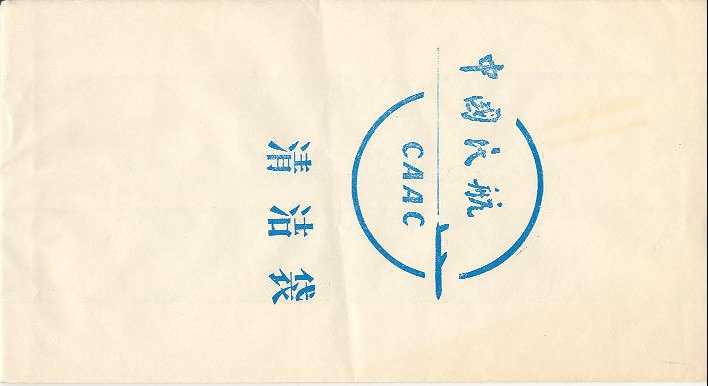 中國民航
CAAC
清洁袋